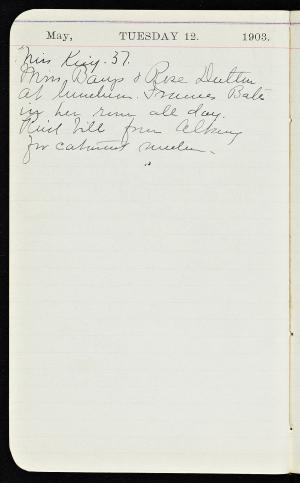 May, TUESDAY 12. 1903.
Miss King. 37.
Mrs Bangs & Rose Dutton
at luncheon. Frances Bates
in her room all day.
bill from Albany
for cabinet